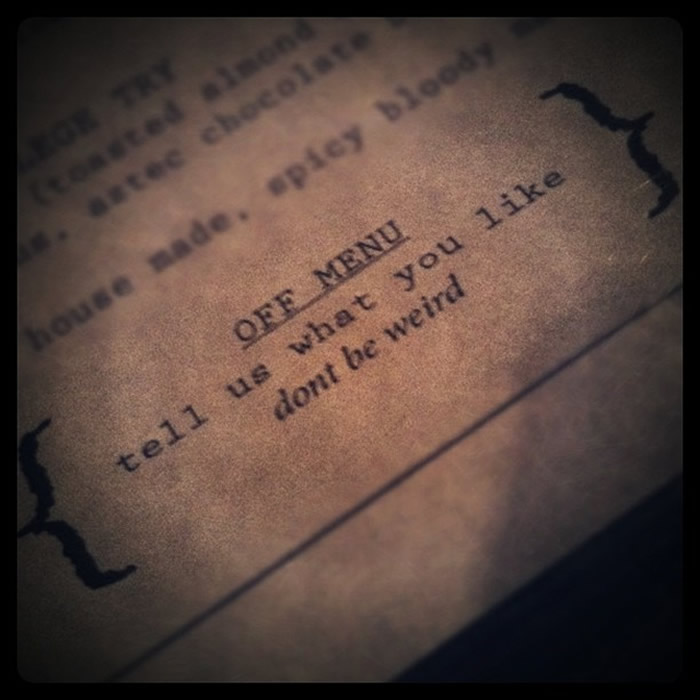 (toasted almond
aztec chocolate
house made, spicy bloody
OFF MENU
tell us what you like
dont be weird